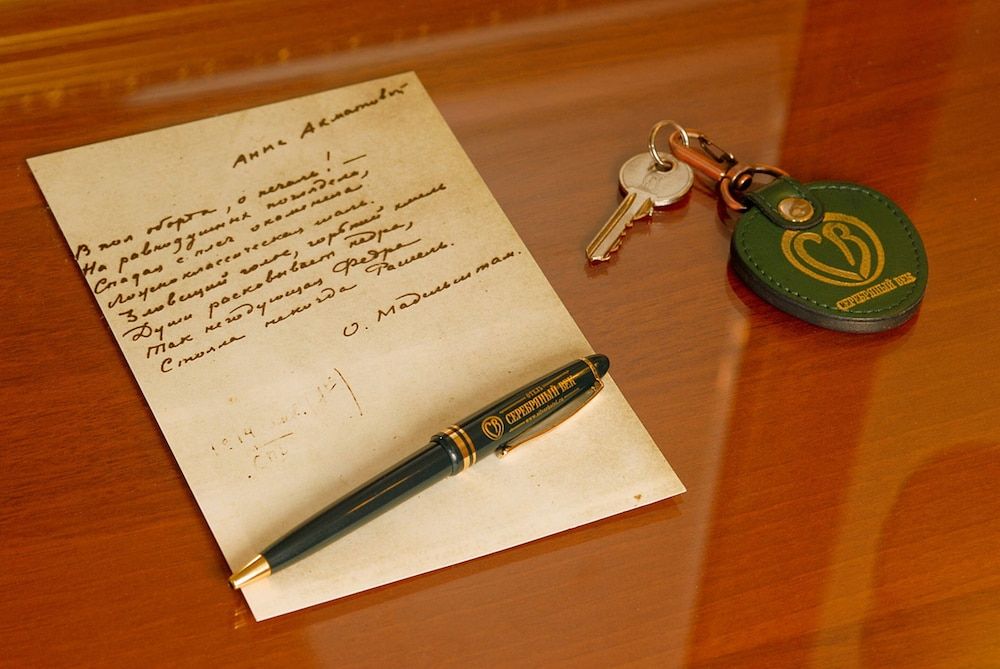 Анне Ахматовой
В пол оборота, о печаль! —
На равнодушных поглядела,
Спадая с плеч окаменела
Ложноклассическая шаль.
Зловещий голос, горький хмель
Души расковывает недра,
Так негодующая Федра
Стояла некогда Рашель.
О. Мадельштам.
1914
СПб
ОТЕЛЬ
СЕРЕБРЯНЫЙ ВЕК
СВ
СВ
СЕРЕБРЯНЫЙ ВЕК